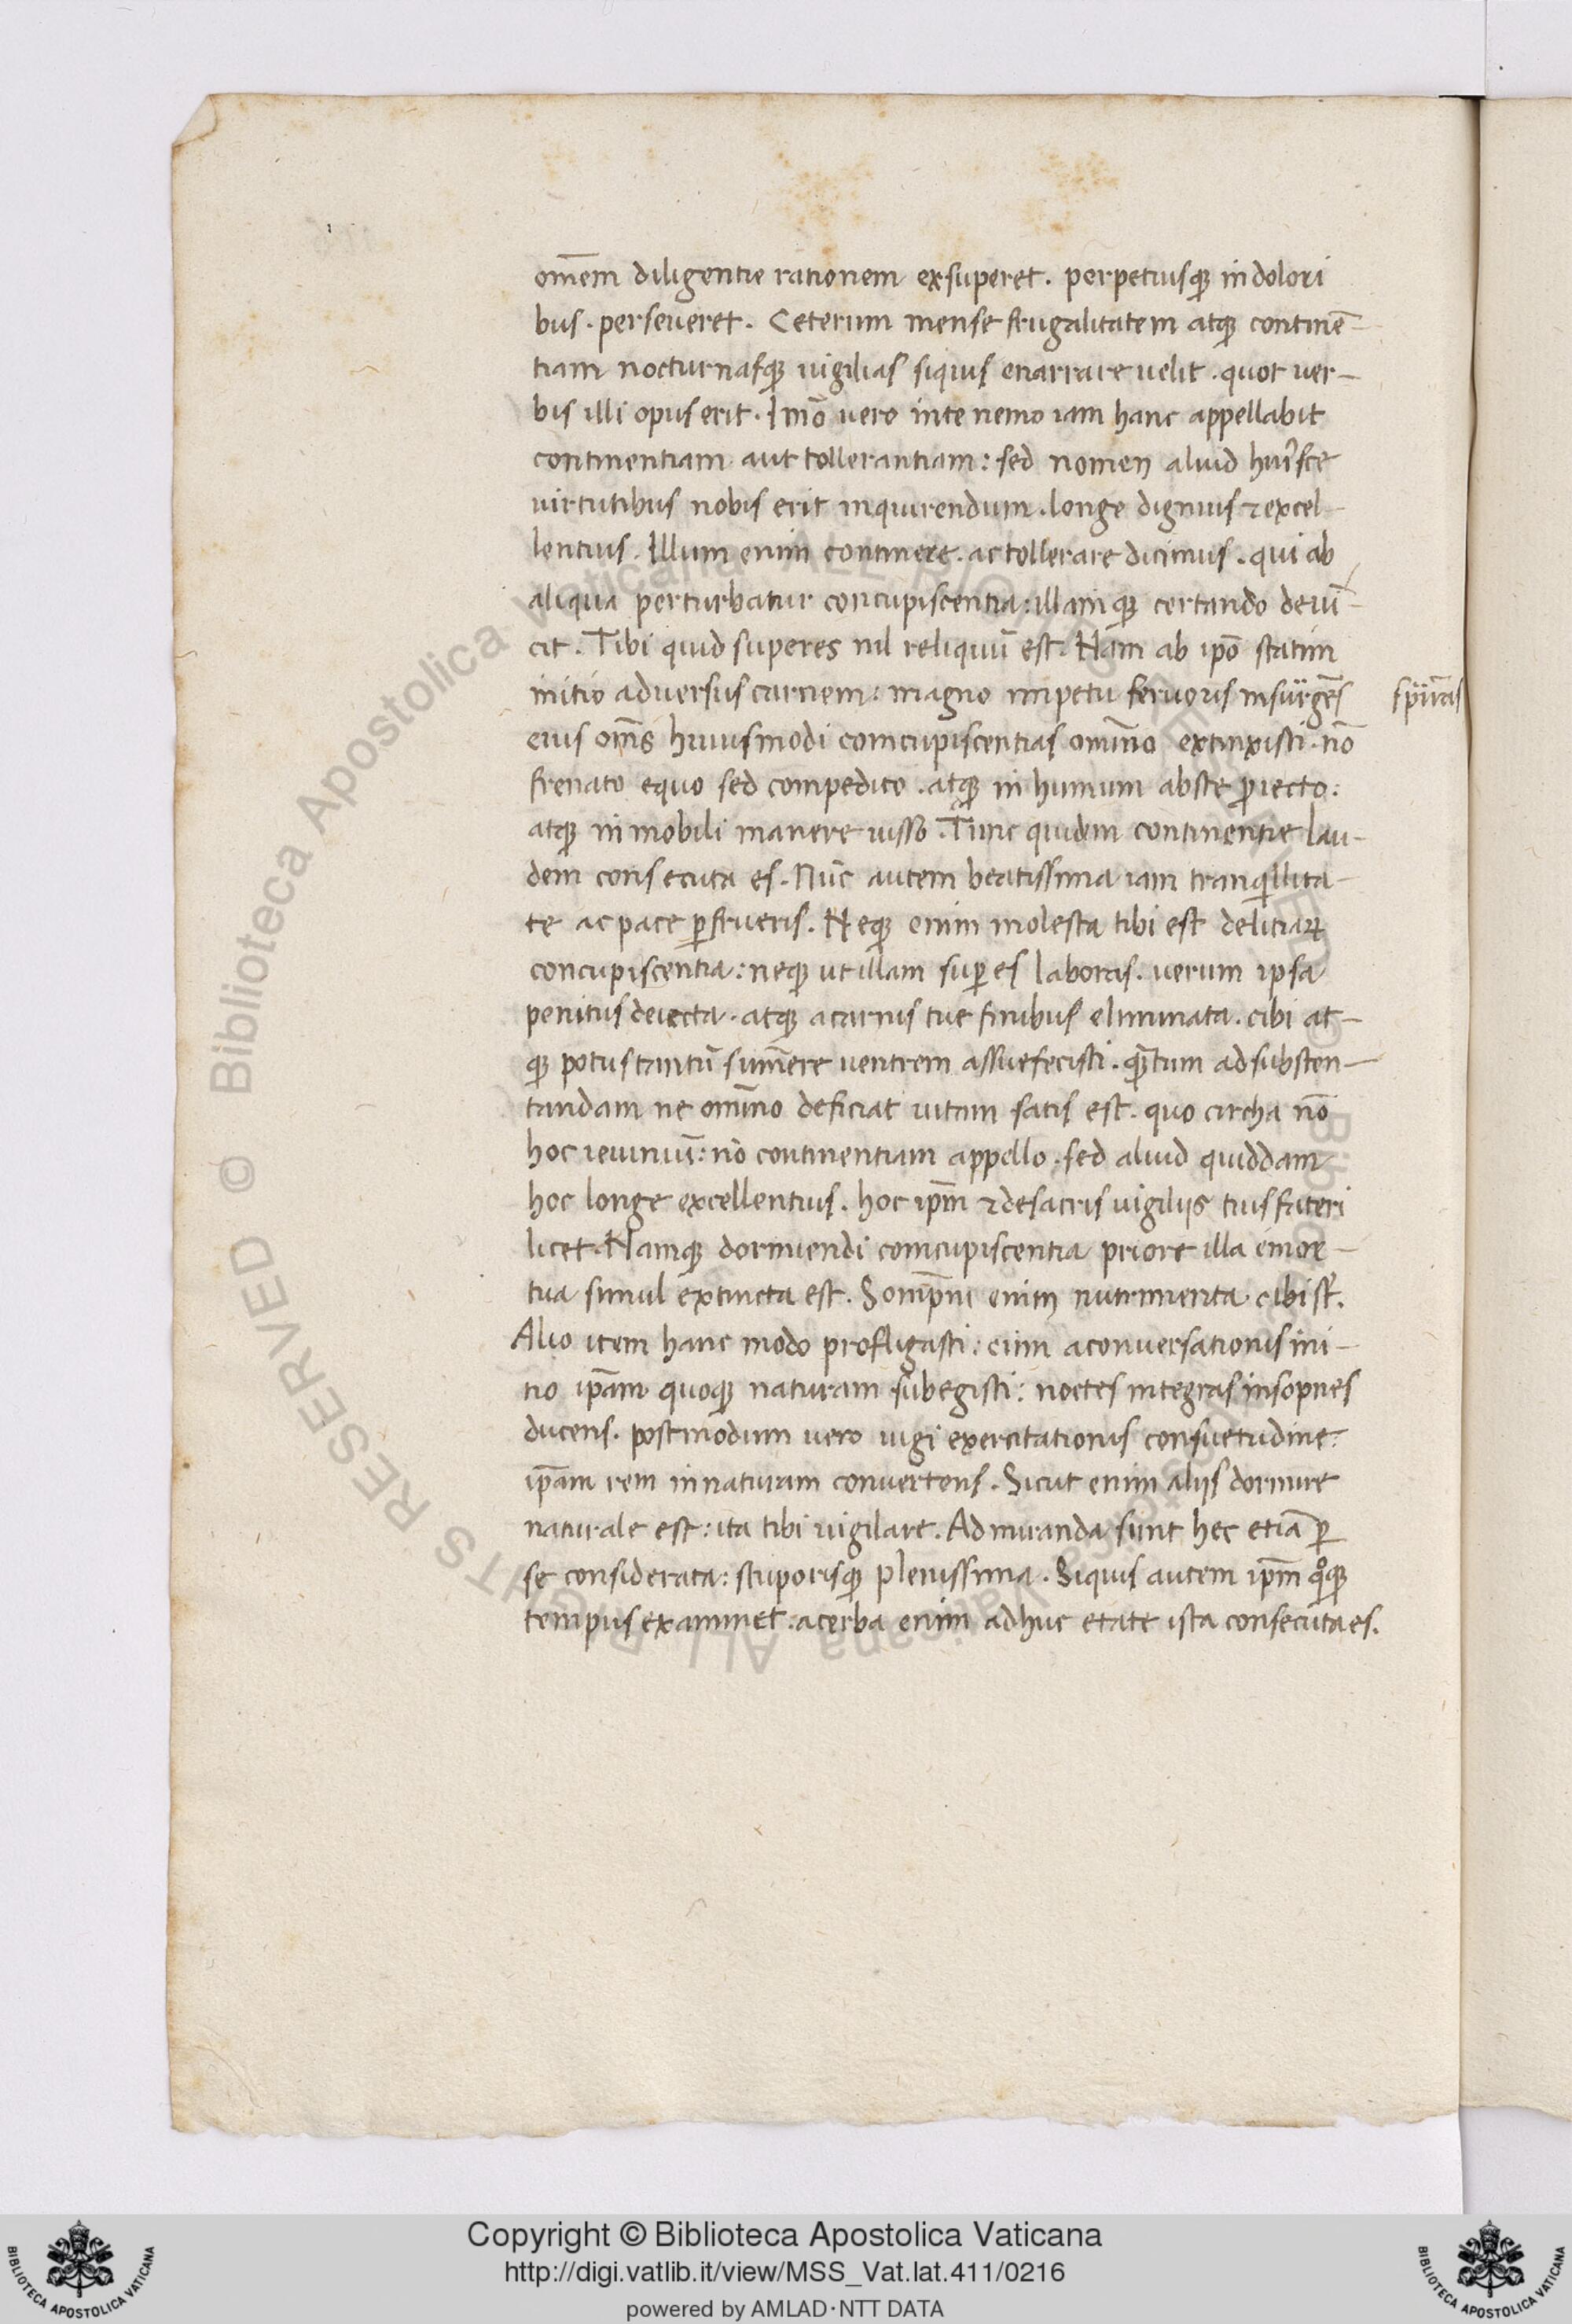 om̄em diligentie rationem exsuperet. perpetuisqꝫ in dolori
bus. perseueret. Ceterum mense frugalitatem atqꝫ continē-
tiam nocturnasqꝫ uigilias siquis enarrare uelit. quot uer-
bis illi opus erit. Imō uero in te nemo iam hanc appellabit
continentiam aut tollerantiam: sed nomen aliud huĩsce
uirtutibus nobis erit inquirendum. longe dignius ⁊ excel-
lentius. Illum enim continere. ac tollerare dicimus. qui ab
aliqua perturbatur concupiscentia: illamqꝫ certando deui-
cit. Tibi quid superes nil reliquū est. Nam ab ip̄o statim
initio aduersus carnem: magno impetu feruoris insurgēs
eius om̄s huiusmodi comcupiscentias omīno extinxisti. nō
frenato equo sed compedito. atqꝫ in humum abste ꝓiecto:
atqꝫ inmobili manere iusso. Tunc quidem continentie lau-
dem consecuta es. Nūc autem beatissima iam tranqͥllita-
te ac pace ꝑfrueris. Neqꝫ enim molesta tibi est delitiaꝝ
concupiscentia: neqꝫ ut illam suꝑes laboras. uerum ipsa
penitus deiecta. atqꝫ a carnis tue finibus eliminata. cibi at-
qꝫ potus tantū sum̄ere uentrem assuefecisti. qͣtum ad substen-
tandam ne omīno deficiat uitam satis est. quo circha nō
hoc ieiuniū: nō continentiam appello. sed aliud quiddam
hoc longe excellentius. hoc ip̄m ⁊ de sacris uigiliis tuis fateri
licet. Namqꝫ dormiendi comcupiscentia priore illa emor-
tua simul extincta est. Somp̄ni enim nutrimenta cibi st̄.
Alio item hanc modo profligasti: cum a conuersationis ini-
tio ip̄am quoqꝫ naturam subegisti: noctes integras insopnes
ducens. postmodum uero iugi exercitationis consuetudine:
ip̄am rem in naturam conuertens. Sicut enim aliis dormire
naturale est: ita tibi uigilare. Admiranda sunt hec etiā ꝑ
se considerata: stuporisqꝫ plenissima. Siquis autem ip̄m qͦqꝫ
tempus examinet. acerba enim adhuc etate ista consecuta es.